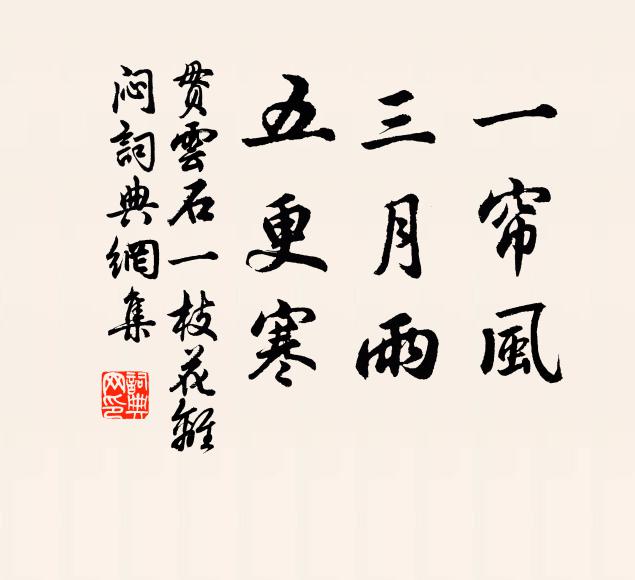 一帘風
三月雨
五更寒
貫雲石一枝花離
悶詞典網集
詞典網印